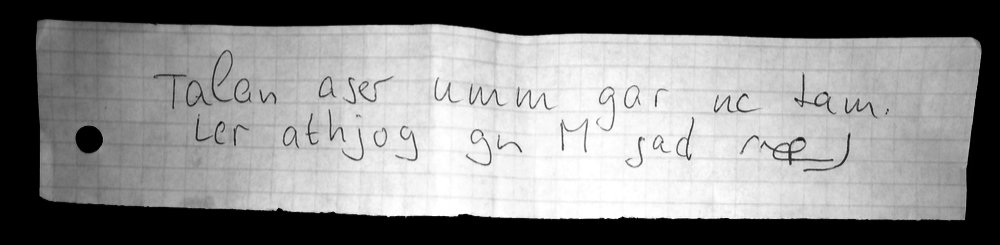 Talan aser umm gar nc tam.
Ler athjog gn M sad